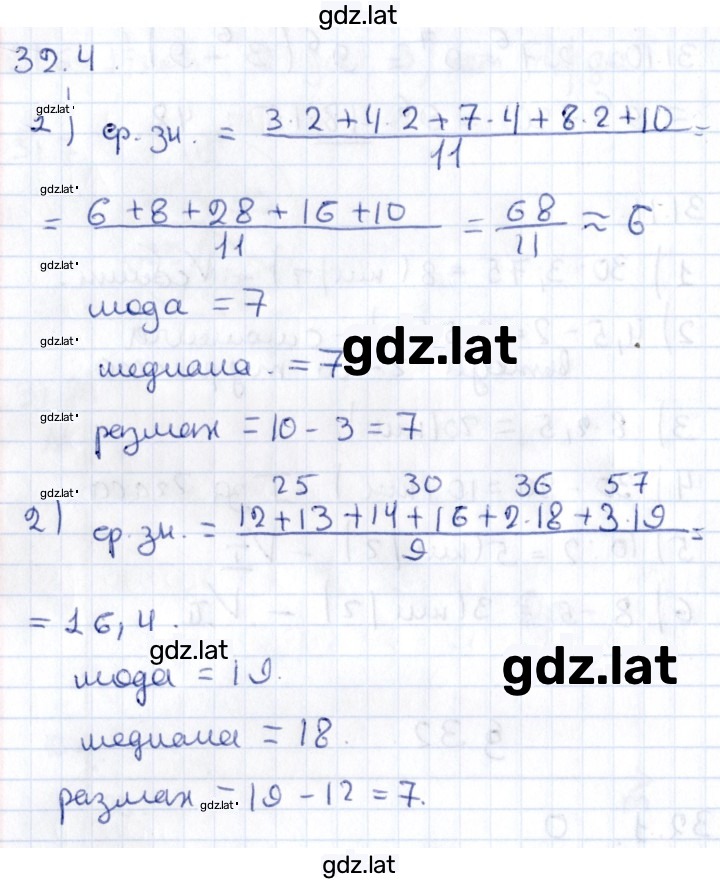 gdz.lat
32.4.
gdz.lat
1) ср. зн. = 3·2+4·2+7·4+8·2+10 / 11 =
gdz.lat
= 6+8+28+16+10 / 11 = 68 / 11 ≈ 6
gdz.lat
мода = 7
gdz.lat
медиана = 7
gdz.lat
gdz.lat
размах = 10 - 3 = 7
gdz.lat
25 30 36 57
2) ср. зн. = 12+13+14+16+2·18+3·19 / 9 =
= 16,4.
gdz.lat
мода = 19.
gdz.lat
медиана = 18.
размах = 19 - 12 = 7.
gdz.lat
gdz.lat